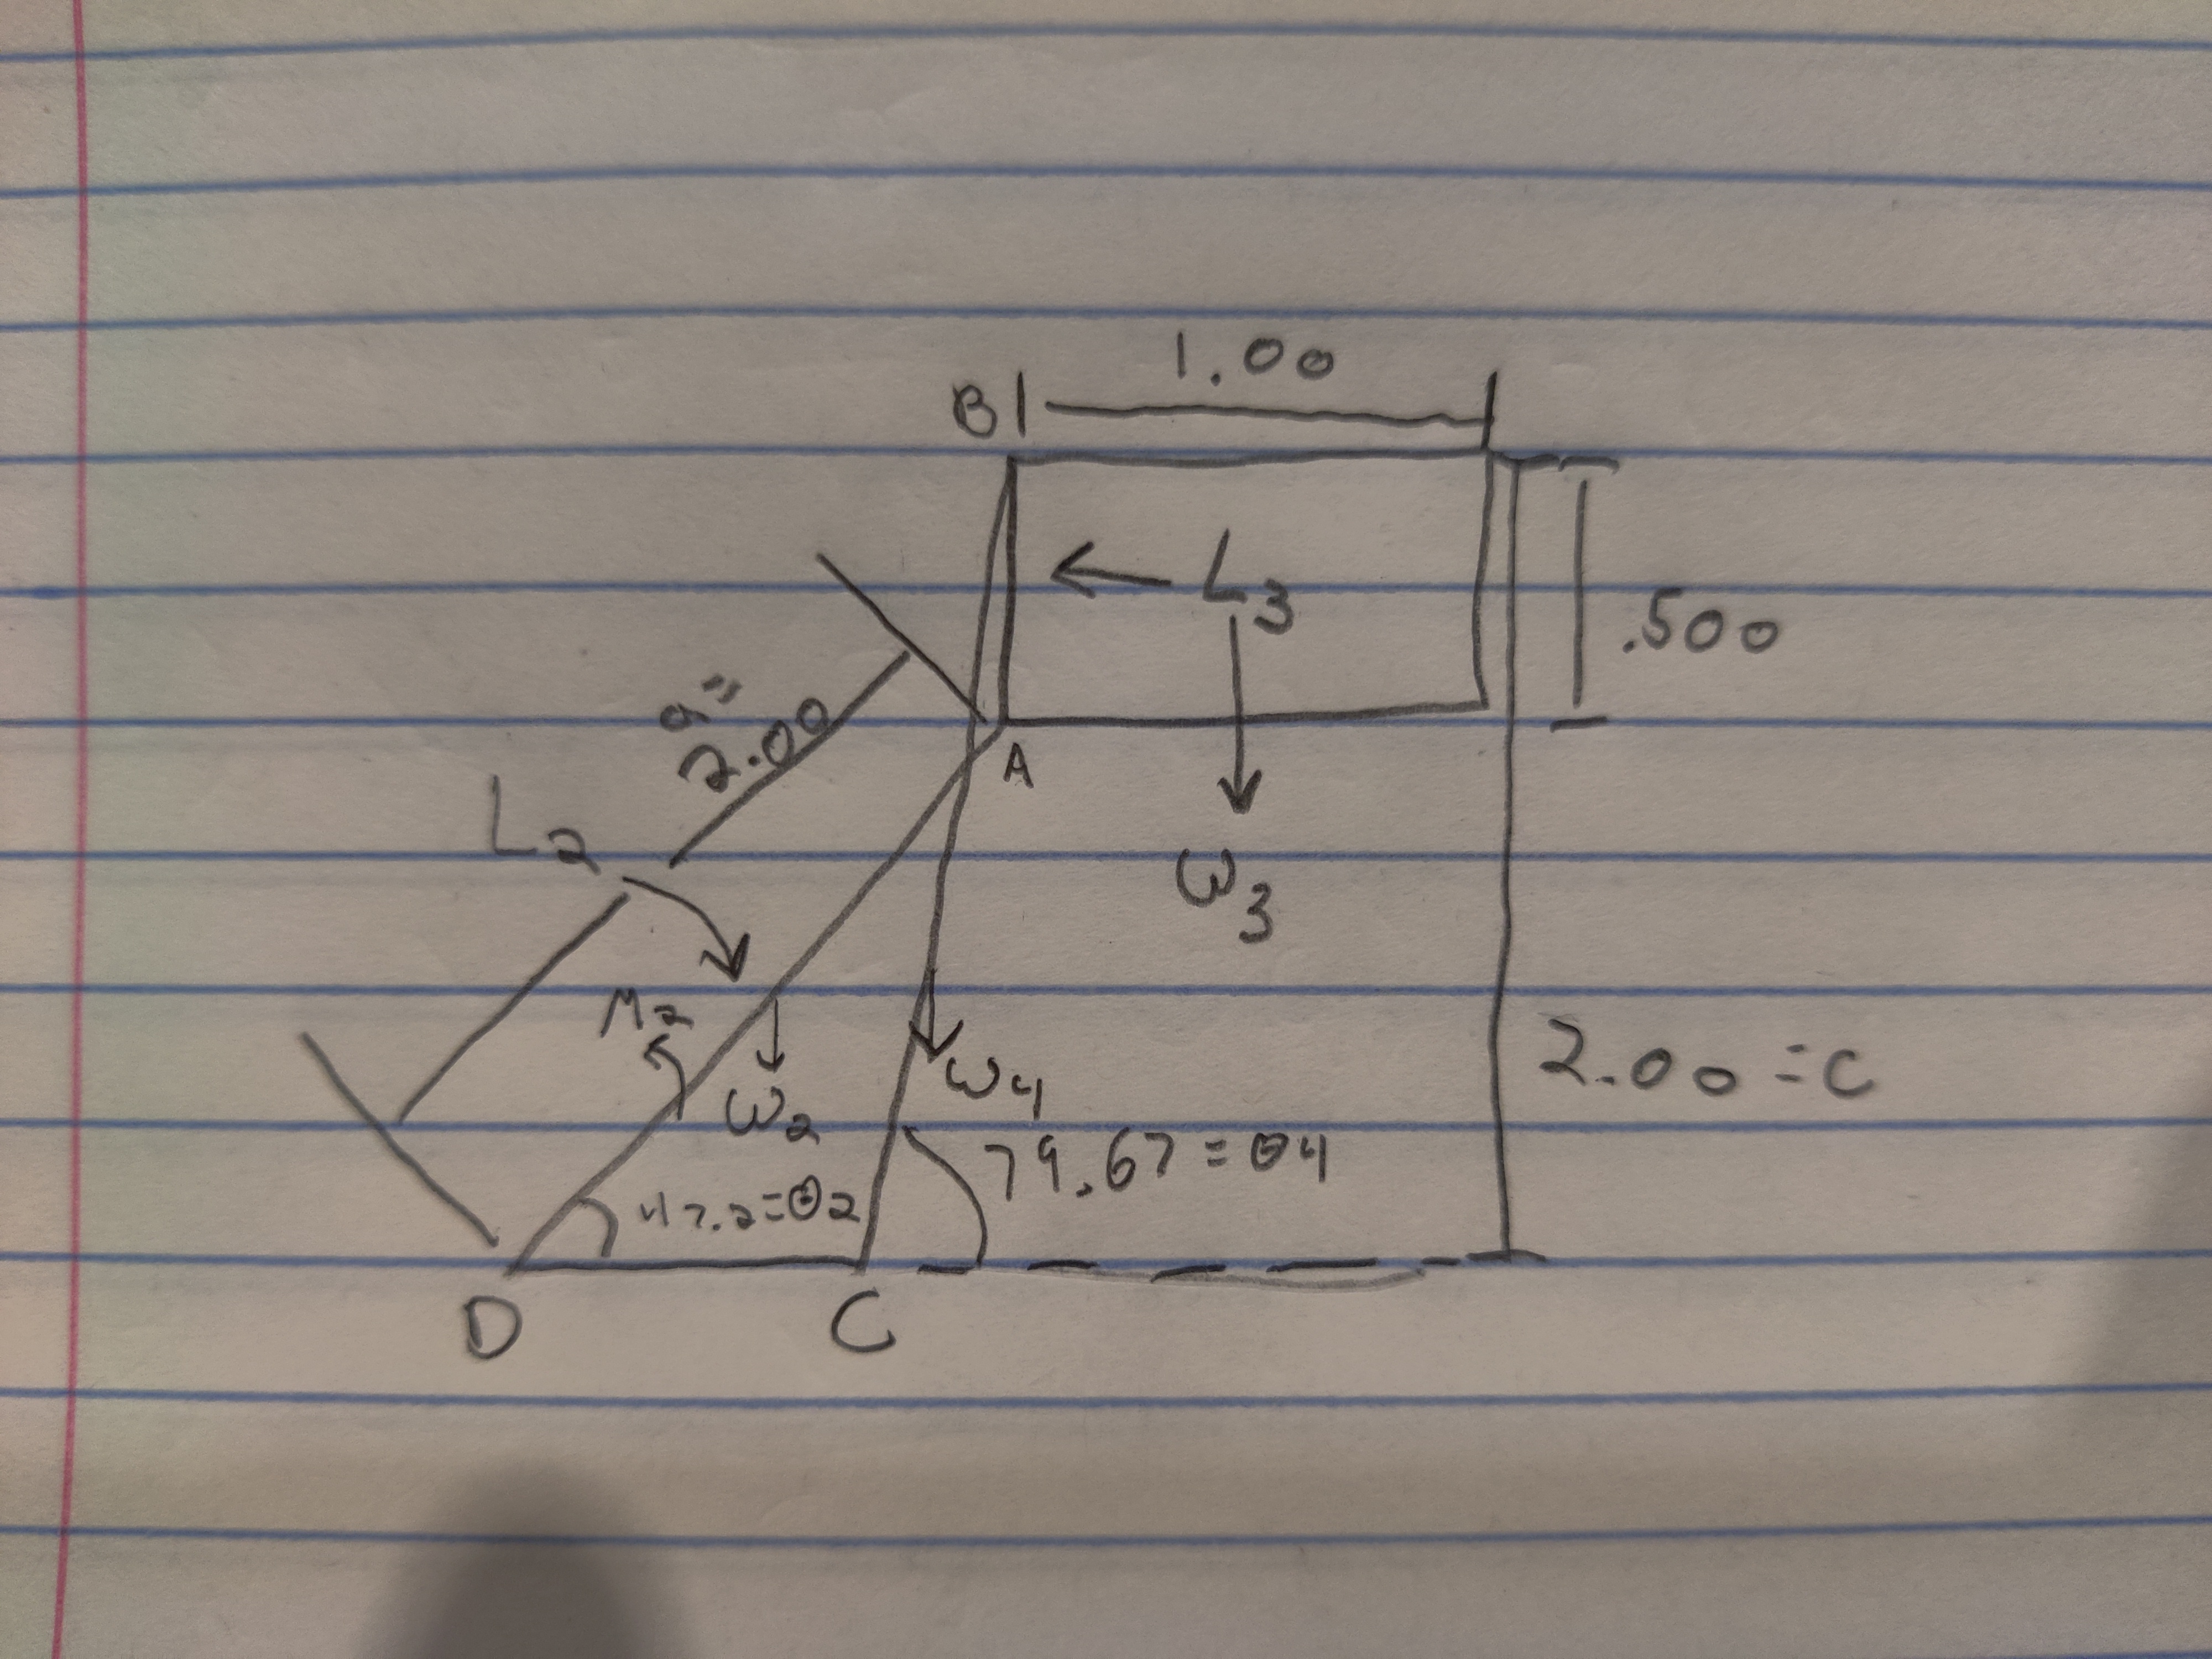 1.00
B
L3
.500
a"
2.00
A
L2
ω3
M2
ω2
ω4
2.00 = C
79.67 = θ4
47.2 = θ2
D
C